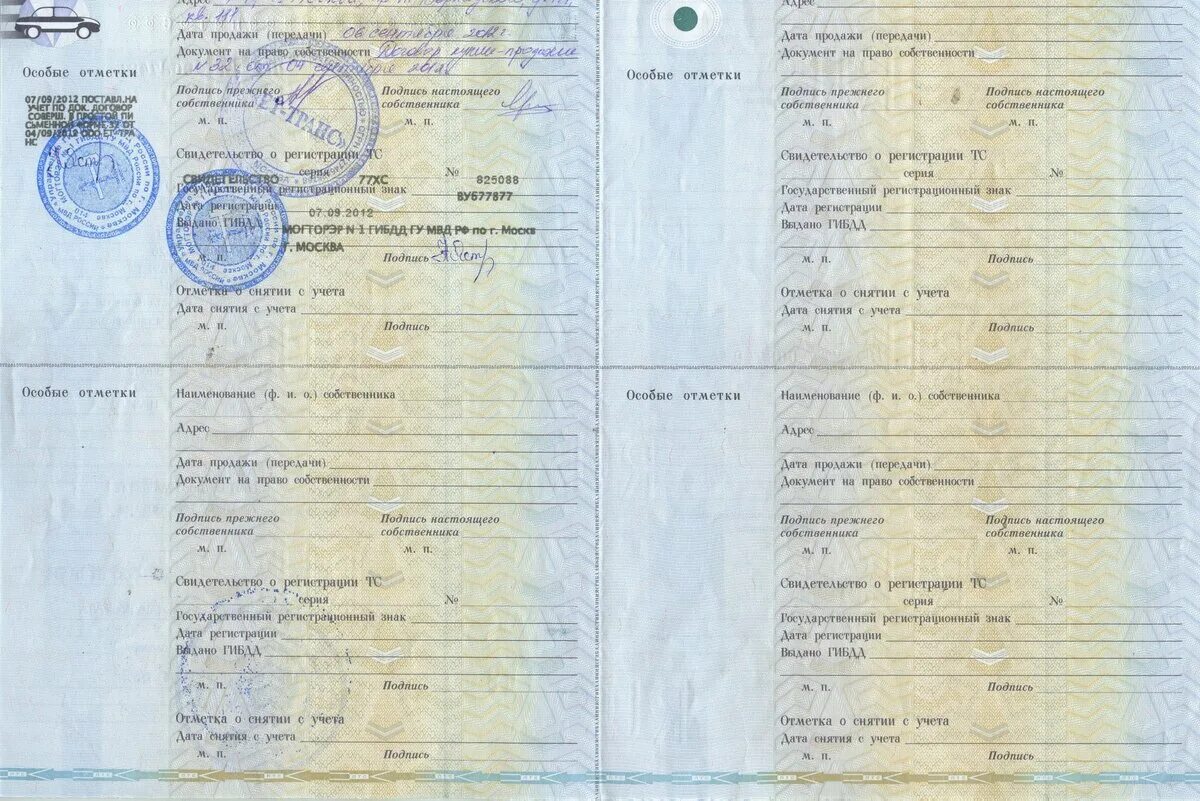 Адрес
кв. 111
Дата продажи (передачи) 06 сентября 2012г
Документ на право собственности Договор купли-продажи
N 32 от 04 сентября 2012
Особые отметки
Подпись прежнего собственника
Подпись настоящего собственника
м. п.
м. п.
07/09/2012 ПОСТАВЛ.НА
УЧЕТ ПО ДОК. ДОГОВОР
СОВЕРШ. В ПРОСТОЙ ПИ
СЬМЕННОЙ ФОРМЕ ЗУ ОТ
04/09/2012 ООО ЕТ-ТРА
НС
Свидетельство о регистрации ТС
серия №
СВИДЕТЕЛЬСТВО 77ХС 825088
Государственный регистрационный знак ВУ677877
Дата регистрации 07.09.2012
Выдано ГИБДД МОГТОРЭР N 1 ГИБДД ГУ МВД РФ по г. Москв
Г. МОСКВА
м. п. Подпись
Отметка о снятии с учета
Дата снятия с учета
м. п. Подпись
Адрес
Дата продажи (передачи)
Документ на право собственности
Особые отметки
Подпись прежнего собственника
Подпись настоящего собственника
м. п.
м. п.
Свидетельство о регистрации ТС
серия №
Государственный регистрационный знак
Дата регистрации
Выдано ГИБДД
м. п. Подпись
Отметка о снятии с учета
Дата снятия с учета
м. п. Подпись
Особые отметки
Наименование (ф. и. о.) собственника
Адрес
Дата продажи (передачи)
Документ на право собственности
Подпись прежнего собственника
Подпись настоящего собственника
м. п.
м. п.
Свидетельство о регистрации ТС
серия №
Государственный регистрационный знак
Дата регистрации
Выдано ГИБДД
м. п. Подпись
Отметка о снятии с учета
Дата снятия с учета
м. п. Подпись
Особые отметки
Наименование (ф. и. о.) собственника
Адрес
Дата продажи (передачи)
Документ на право собственности
Подпись прежнего собственника
Подпись настоящего собственника
м. п.
м. п.
Свидетельство о регистрации ТС
серия №
Государственный регистрационный знак
Дата регистрации
Выдано ГИБДД
м. п. Подпись
Отметка о снятии с учета
Дата снятия с учета
м. п. Подпись